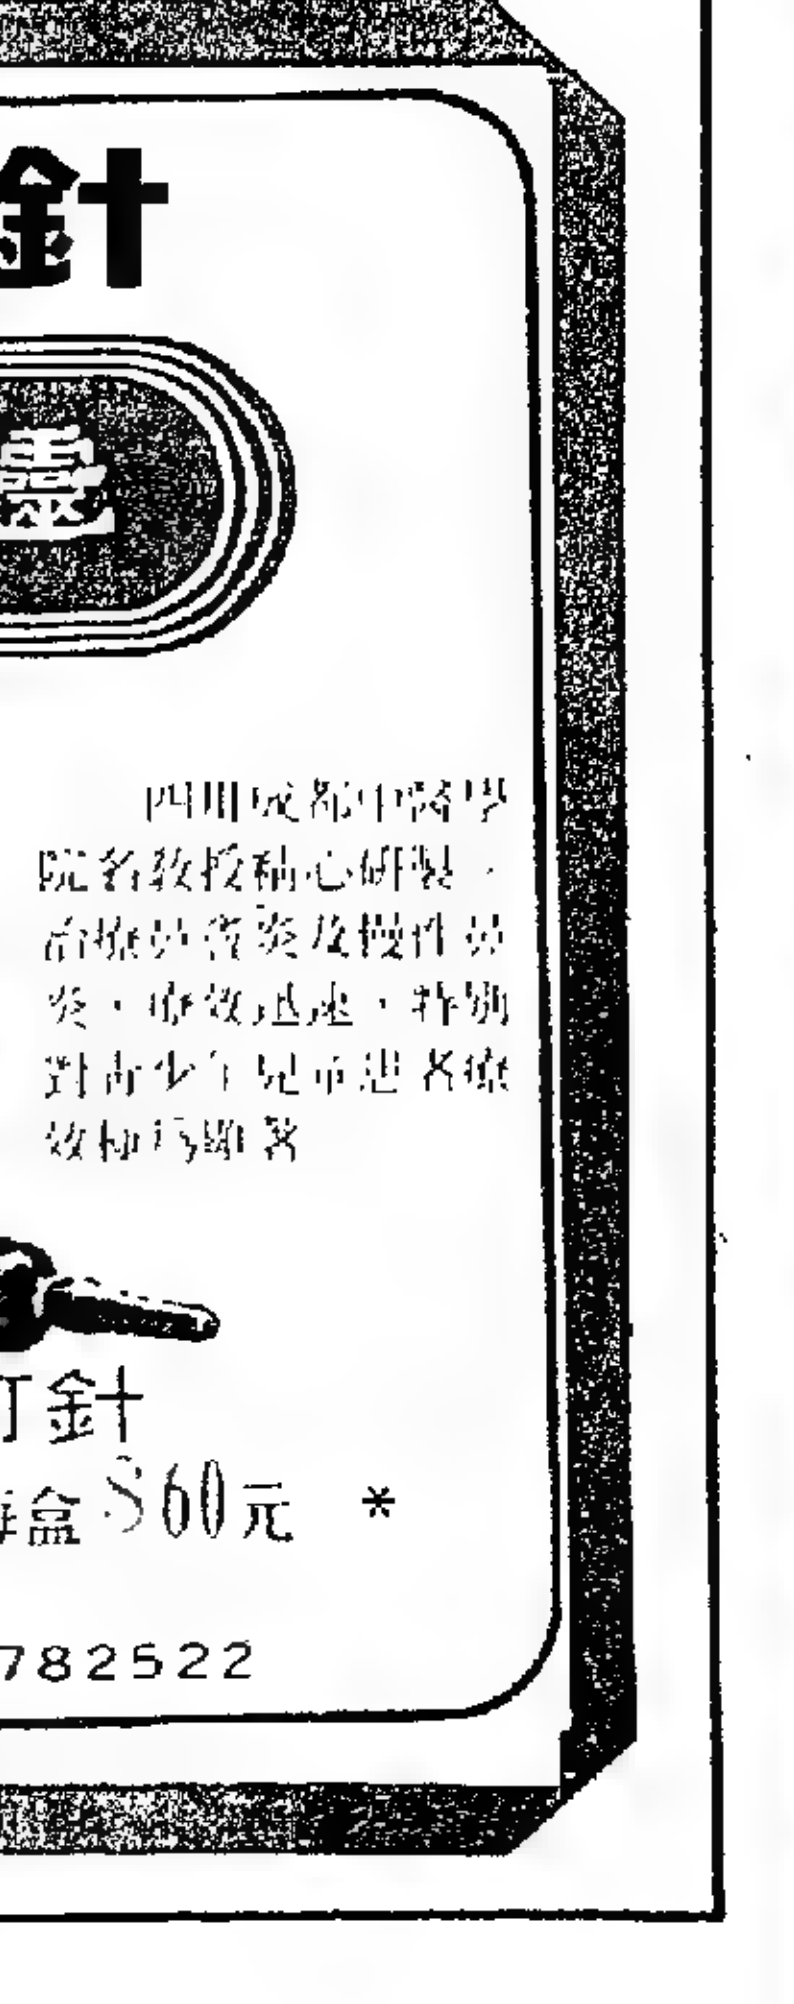 針
靈
四川成都中醫學
院名教授精心研製，
治療鼻竇炎及慢性鼻
炎，療效迅速，特別
對青少年兒童患者療
效極為顯著
打針
每盒 $60元 *
782522